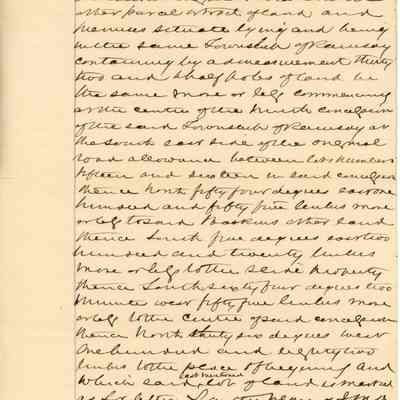 other parcel or tract of land and
premises situate lying and being
in the same Township of Ramsay
containing by admeasurement thirty
two and a half poles of land be
the same more or less commencing
at the centre of the ninth concession
of the said Township of Ramsay at
the South east side of the original
road allowance between lots numbers
fifteen and sixteen in said concession
thence North fifty four degrees east one
hundred and fifty five links more
or less to said Baskins other land
thence South five degrees east two
hundred and twenty links
more or less to the property
thence South sixty four degrees two
minutes west fifty five links more
or less to the centre of said concession
thence North thirty six degrees west
one hundred and eighty two
links to the place of beginning and
last mentioned
which said lot of land is marked
as Lot letter